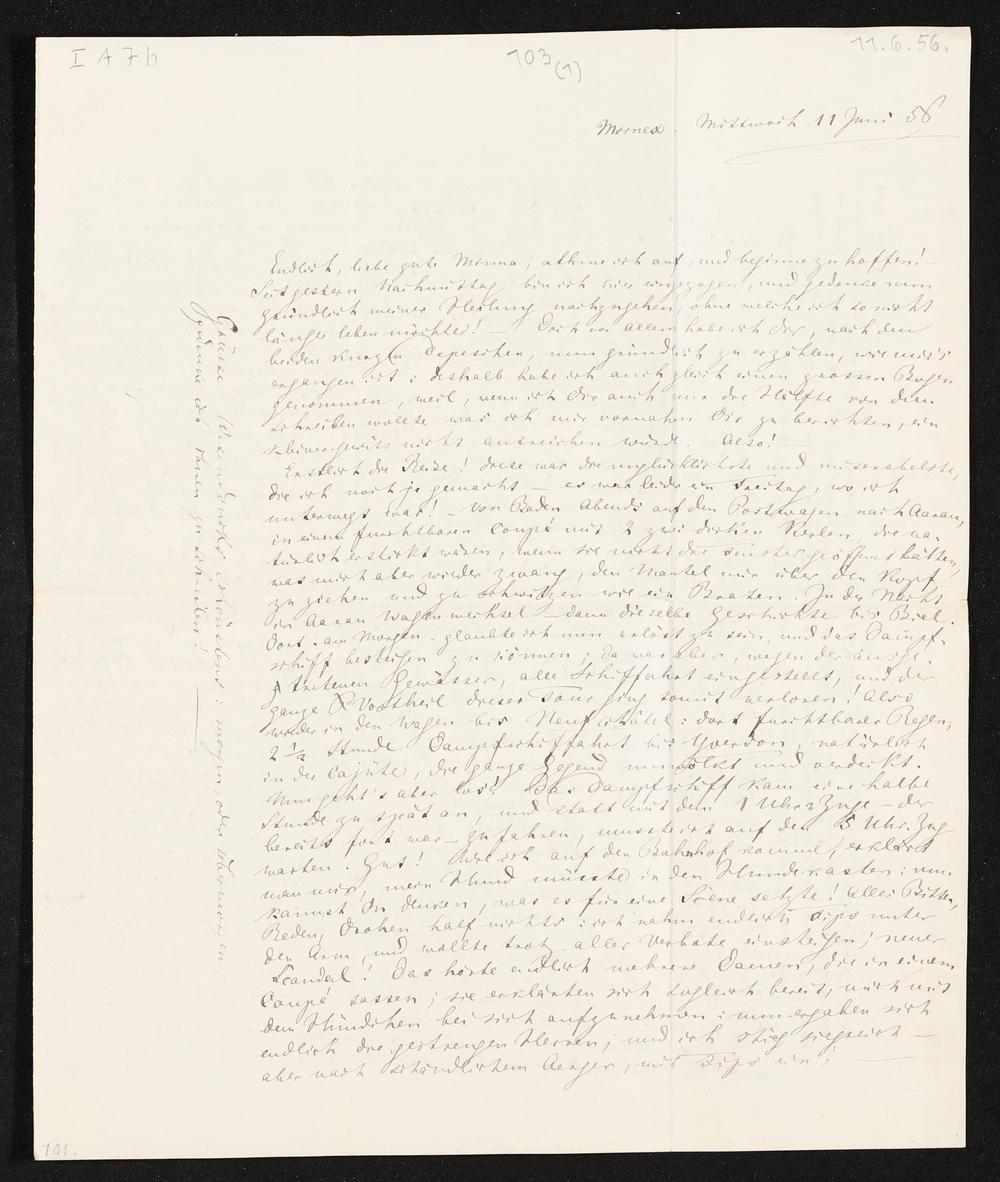 I A 7 b
103 (1)
11.6.56.
Mornex. Mittwoch 11 Juni 56
Endlich, liebe gute Minna, athme ich auf, und beginne zu hoffen! –
Seit gestern Nachmittag bin ich hier eingezogen, und gedenke nun
gründlich meiner Heilung nachzugehen, ohne welche ich so nicht
länger leben möchte! – Doch vor allem habe ich Dir, nach den
beiden kurzen Depeschen, nun gründlich zu erzählen, wie mir's
ergangen ist: deshalb habe ich auch gleich einen grossen Bogen
genommen, weil, wenn ich Dir auch nur die Hälfte von dem
schreiben wollte was ich mir vornahm Dir zu berichten, ein
kleiner gewiss nicht ausreichen würde. Also!
Erstlich die Reise! Diese war die unglücklichste und miserabelste,
die ich noch je gemacht – es war leider ein Freitag, wo ich
unterwegs war! – Von Baden Abends auf den Postwagen nach Aarau,
in einem furchtbaren Coupé mit 2 zwei dicken Kerlen, die na-
türlich erstickt wären, wenn sie nicht das Fenster geöffnet hätten,
was mich aber wieder zwang, den Mantel mir über den Kopf
zu ziehen und zu schwitzen wie ein Braten. In der Nacht
in Aarau Wagenwechsel – dann dieselbe Geschichte bis Biel.
Dort – am Morgen – glaubte ich nun erlöst zu sein, und das Dampf-
schiff besteigen zu können; da war aber, wegen der ausge-
tretenen Gewässer, alle Schiffahrt eingestellt, und der
ganze Vortheil dieser Tour ging somit verloren! Also
wieder in den Wagen bis Neufchâtel: dort furchtbarer Regen;
2 1/2 Stunde Dampfschiffahrt bis Yverdon, natürlich
in der Cajüte, die ganze Gegend umwölkt und verdeckt.
Nun geht's aber los! Das Dampfschiff kam eine halbe
Stunde zu spät an, und statt mit dem 1 Uhr Zuge – der
bereits fort war – zu fahren, musste ich auf den 5 Uhr. Zug
warten. Gut! Wie ich auf den Bahnhof komme, erklärt
man mir, mein Hund müsste in den Hundekasten: nun
kannst Du denken, was es für eine Scene setzte! Alles Bitten,
Reden, Drohen half nichts: ich nahm endlich Fips unter
den Arm, und wollte trotz aller Verbote einsteigen; neuer
Scandal! Das hörte endlich mehrere Damen, die in einem
Coupé sassen; sie erklärten sich sogleich bereit, mich mit
dem Hündchen bei sich aufzunehmen: nun ergaben sich
endlich die gestrengen Herren, und ich stieg siegreich –
aber nach schändlichem Aerger, mit Fips ein! –
Grüsse Wesendoncks schönstens: morgen, oder übermorgen
gedenke ich ihnen zu schreiben! –
101.